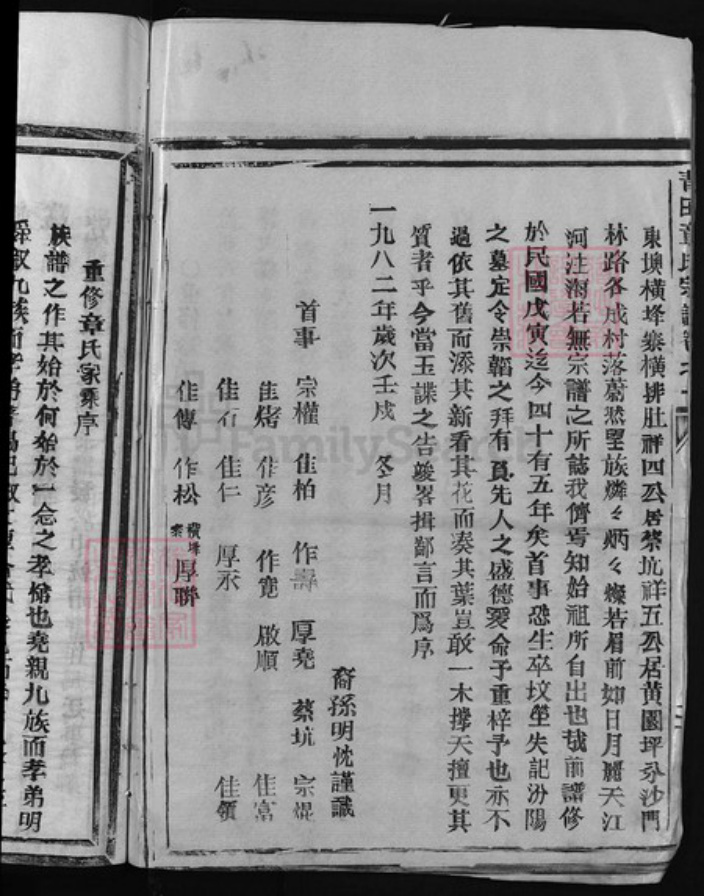 青田章氏宗譜卷之一
東墺橫垟寮橫排肚祥四公居蔡坑祥五公居黄園坪分沙門
林路各成村落蔚然望族燐々炳々燦若眉前如日月麗天江
河注海若無宗譜之所誌我儕焉知始祖所自出也哉前譜修
於民國戊寅迄今四十有五年矣首事恐生卒坟塋失記汾陽
之墓定令崇韜之拜有負先人之盛德爰命予重梓予也亦不
過依其舊而添其新看其花而奏其葉豈敢一木撐天擅更其
質者乎今當玉諜之告竣畧揖鄙言而爲序
一九八二年歲次壬戌 冬月
裔孫明忱謹識
首事 宗權 佳柏 作壽 厚堯 蔡坑 宗焜
佳烤 作彦 作寬 啟順 佳富
佳石 佳仁 厚永 佳領
佳傳 作松 橫垟寮 厚聯
重修章氏家乘序
族譜之作其始於何始於一念之孝榆也堯親九族而孝弟明
舜叙九族而孝弟
FamilySearch